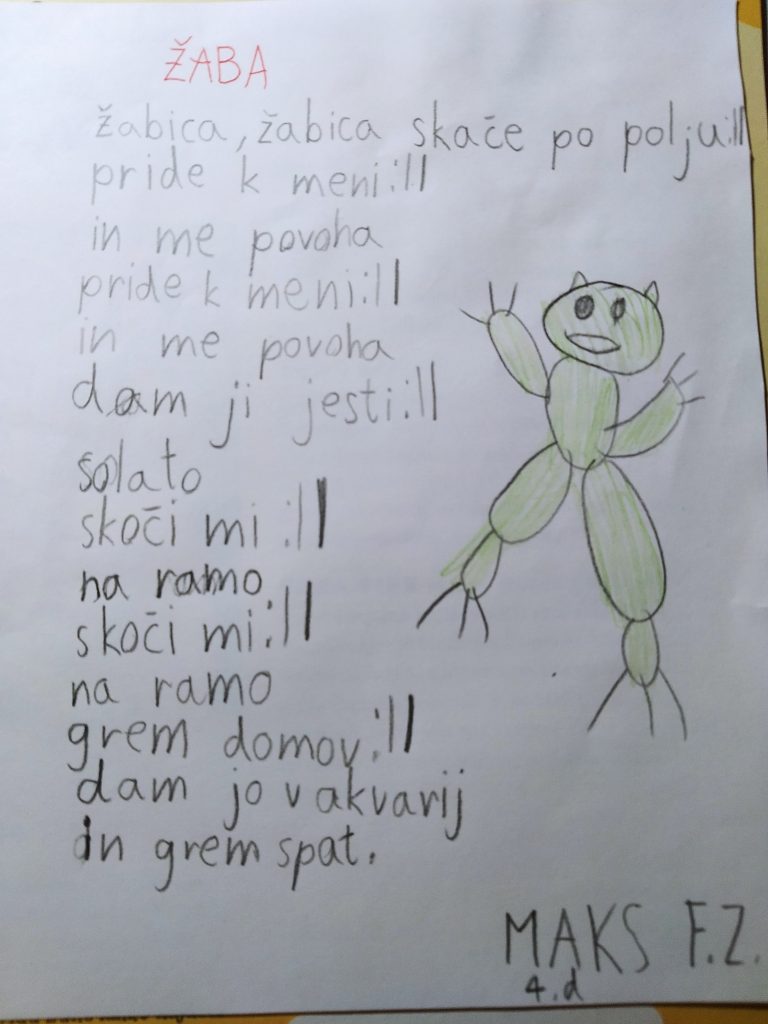 ŽABA
žabica, žabica skače po polju:||
pride k meni:||
in me povoha
pride k meni:||
in me povoha
dam ji jesti:||
solato
skoči mi :||
na ramo
skoči mi:||
na ramo
grem domov:||
dam jo v akvarij
in grem spat.
MAKS F.Z.
4.d